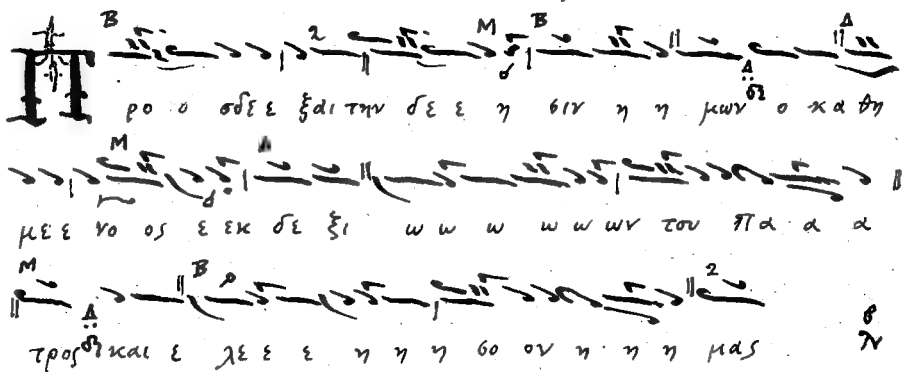 Προ ο σδε ε ξαι την δε ε η σιν η η μων ο κα θη
με ε νο ος ε εκ δε ξι ω ω ω ω ω ων του Πα α α
τρος και ε λε ε ε η η η σο ον η η η μας